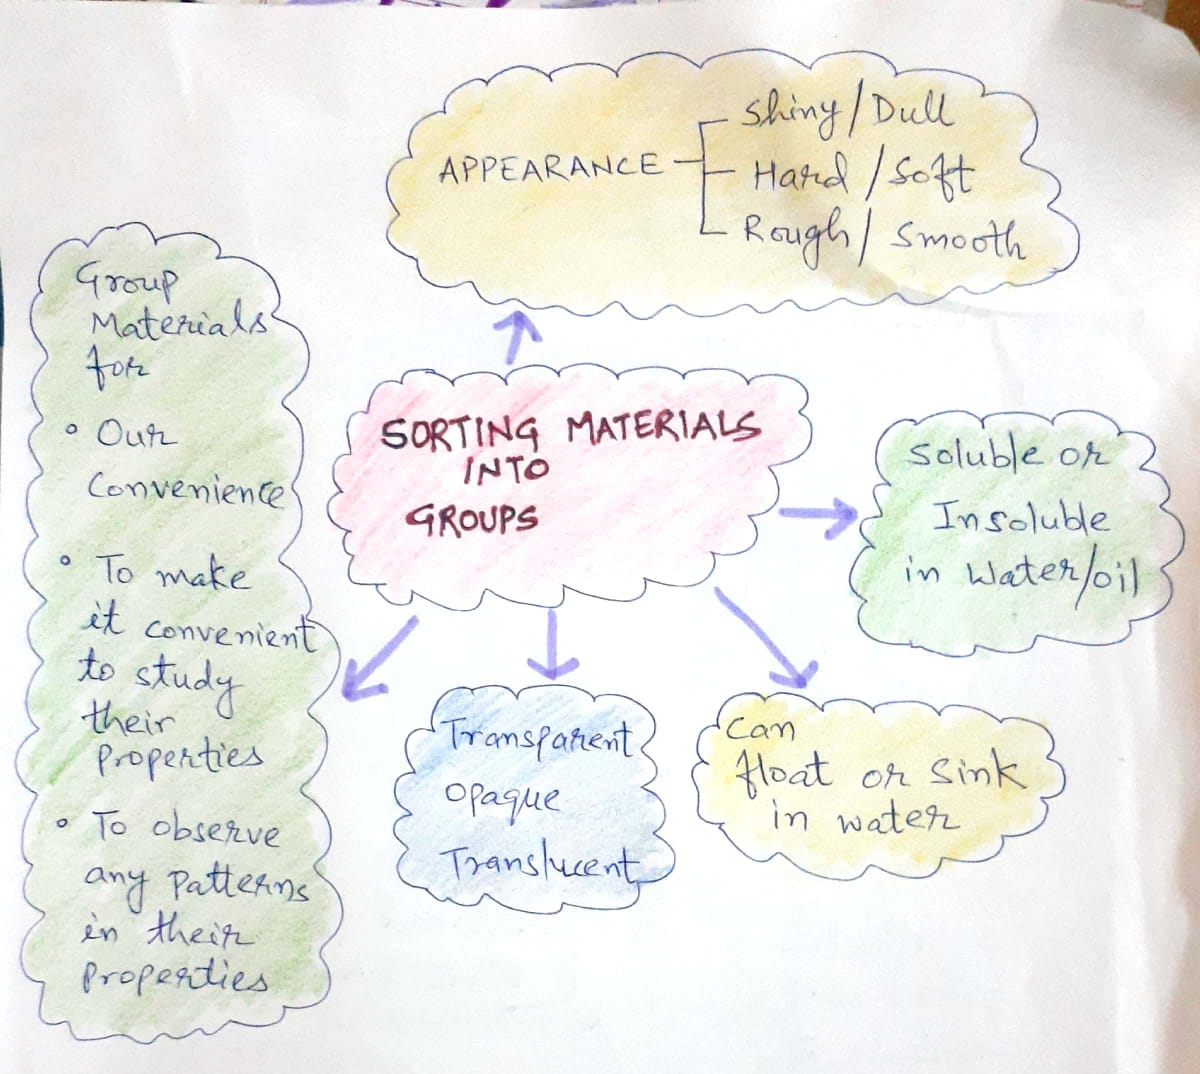 APPEARANCE
Shiny/Dull
Hard/Soft
Rough/Smooth
Group
Materials
for
• Our
Convenience
• To make
it convenient
to study
their
Properties
• To observe
any Patterns
in their
Properties
SORTING MATERIALS
INTO
GROUPS
Soluble or
Insoluble
in Water/oil
Transparent
Opaque
Translucent
Can
float or Sink
in water